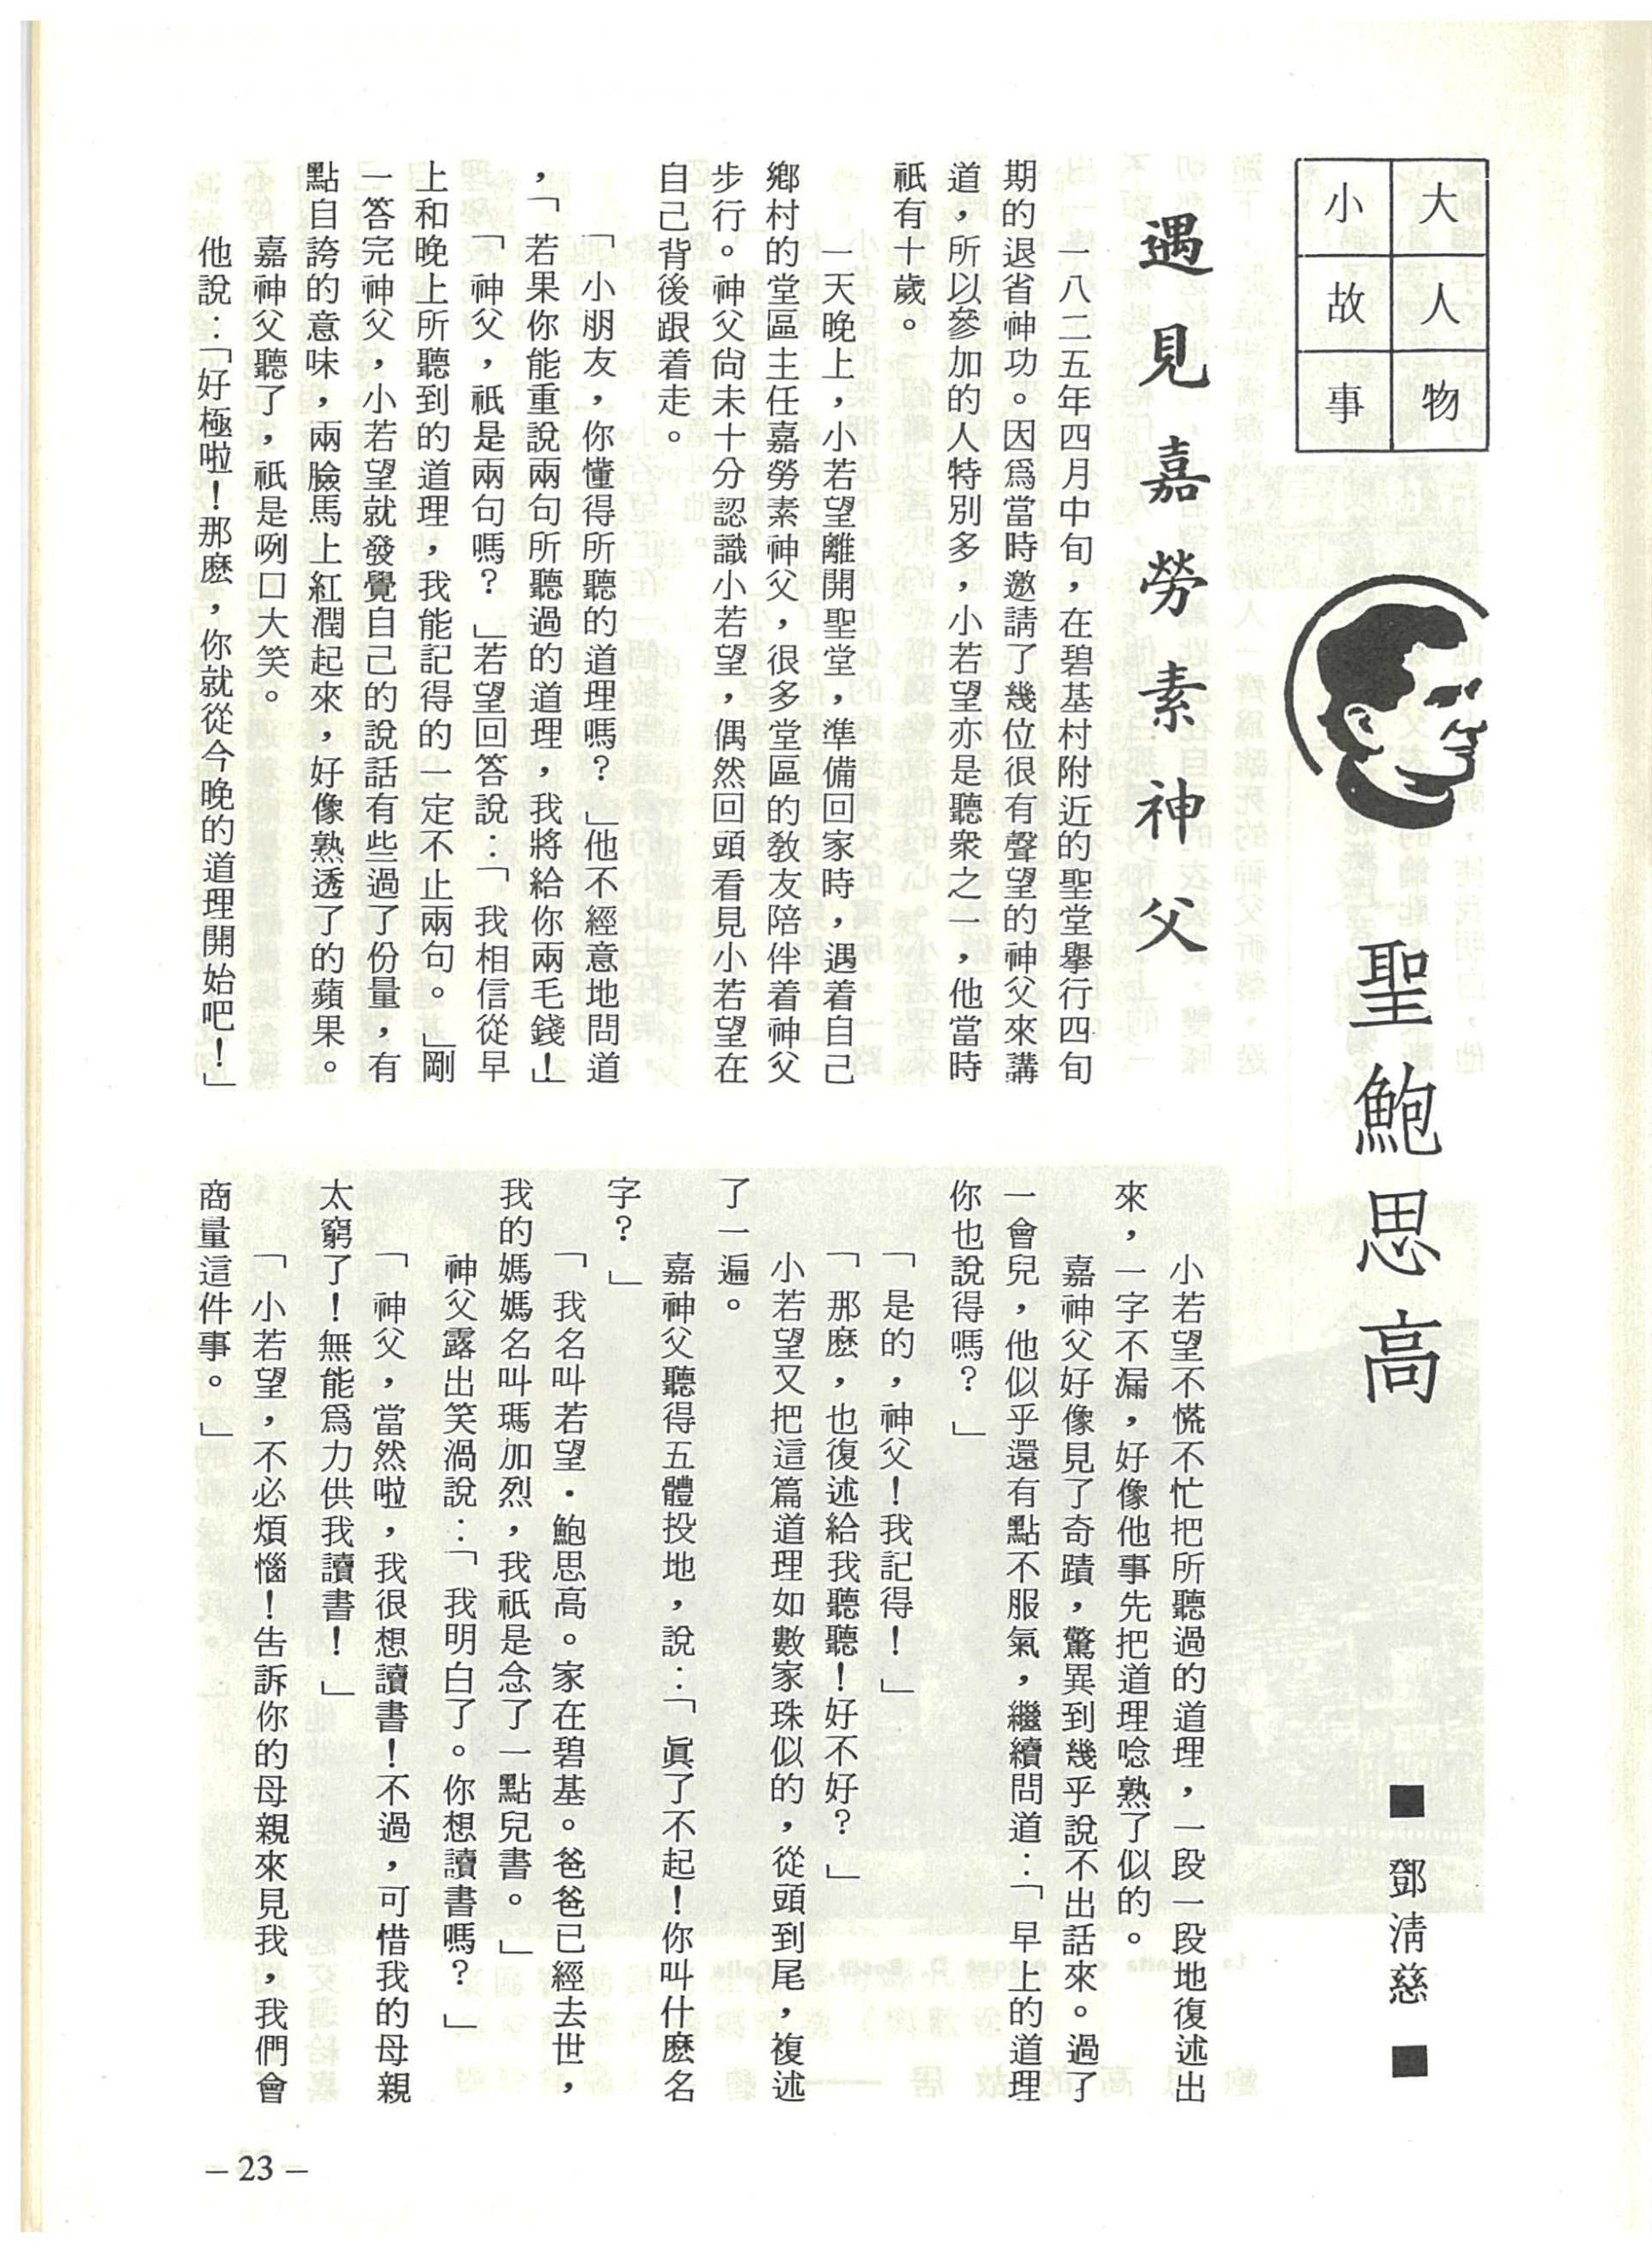 大人物
小故事
聖鮑思高
■ 鄧淸慈 ■
遇見嘉勞素神父
一八二五年四月中旬，在碧基村附近的聖堂擧行四旬
期的退省神功。因爲當時邀請了幾位很有聲望的神父來講
道，所以參加的人特別多，小若望亦是聽衆之一，他當時
祇有十歲。
一天晚上，小若望離開聖堂，準備回家時，遇着自己
鄉村的堂區主任嘉勞素神父，很多堂區的敎友陪伴着神父
步行。神父尙未十分認識小若望，偶然回頭看見小若望在
自己背後跟着走。
「小朋友，你懂得所聽的道理嗎？」他不經意地問道
，「若果你能重說兩句所聽過的道理，我將給你兩毛錢！」
「神父，祇是兩句嗎？」若望回答說：「我相信從早
上和晚上所聽到的道理，我能記得的一定不止兩句。」剛
一答完神父，小若望就發覺自己的說話有些過了份量，有
點自誇的意味，兩臉馬上紅潤起來，好像熟透了的蘋果。
嘉神父聽了，祇是咧口大笑。
他說：「好極啦！那麽，你就從今晚的道理開始吧！」
小若望不慌不忙把所聽過的道理，一段一段地復述出
來，一字不漏，好像他事先把道理唸熟了似的。
嘉神父好像見了奇蹟，驚異到幾乎說不出話來。過了
一會兒，他似乎還有點不服氣，繼續問道：「早上的道理
你也說得嗎？」
「是的，神父！我記得！」
「那麽，也復述給我聽聽！好不好？」
小若望又把這篇道理如數家珠似的，從頭到尾，複述
了一遍。
嘉神父聽得五體投地，說：「眞了不起！你叫什麽名
字？」
「我名叫若望．鮑思高。家在碧基。爸爸已經去世，
我的媽媽名叫瑪加烈，我祇是念了一點兒書。」
神父露出笑渦說：「我明白了。你想讀書嗎？」
「神父，當然啦，我很想讀書！不過，可惜我的母親
太窮了！無能爲力供我讀書！」
「小若望，不必煩惱！告訴你的母親來見我，我們會
商量這件事。」
– 23 –